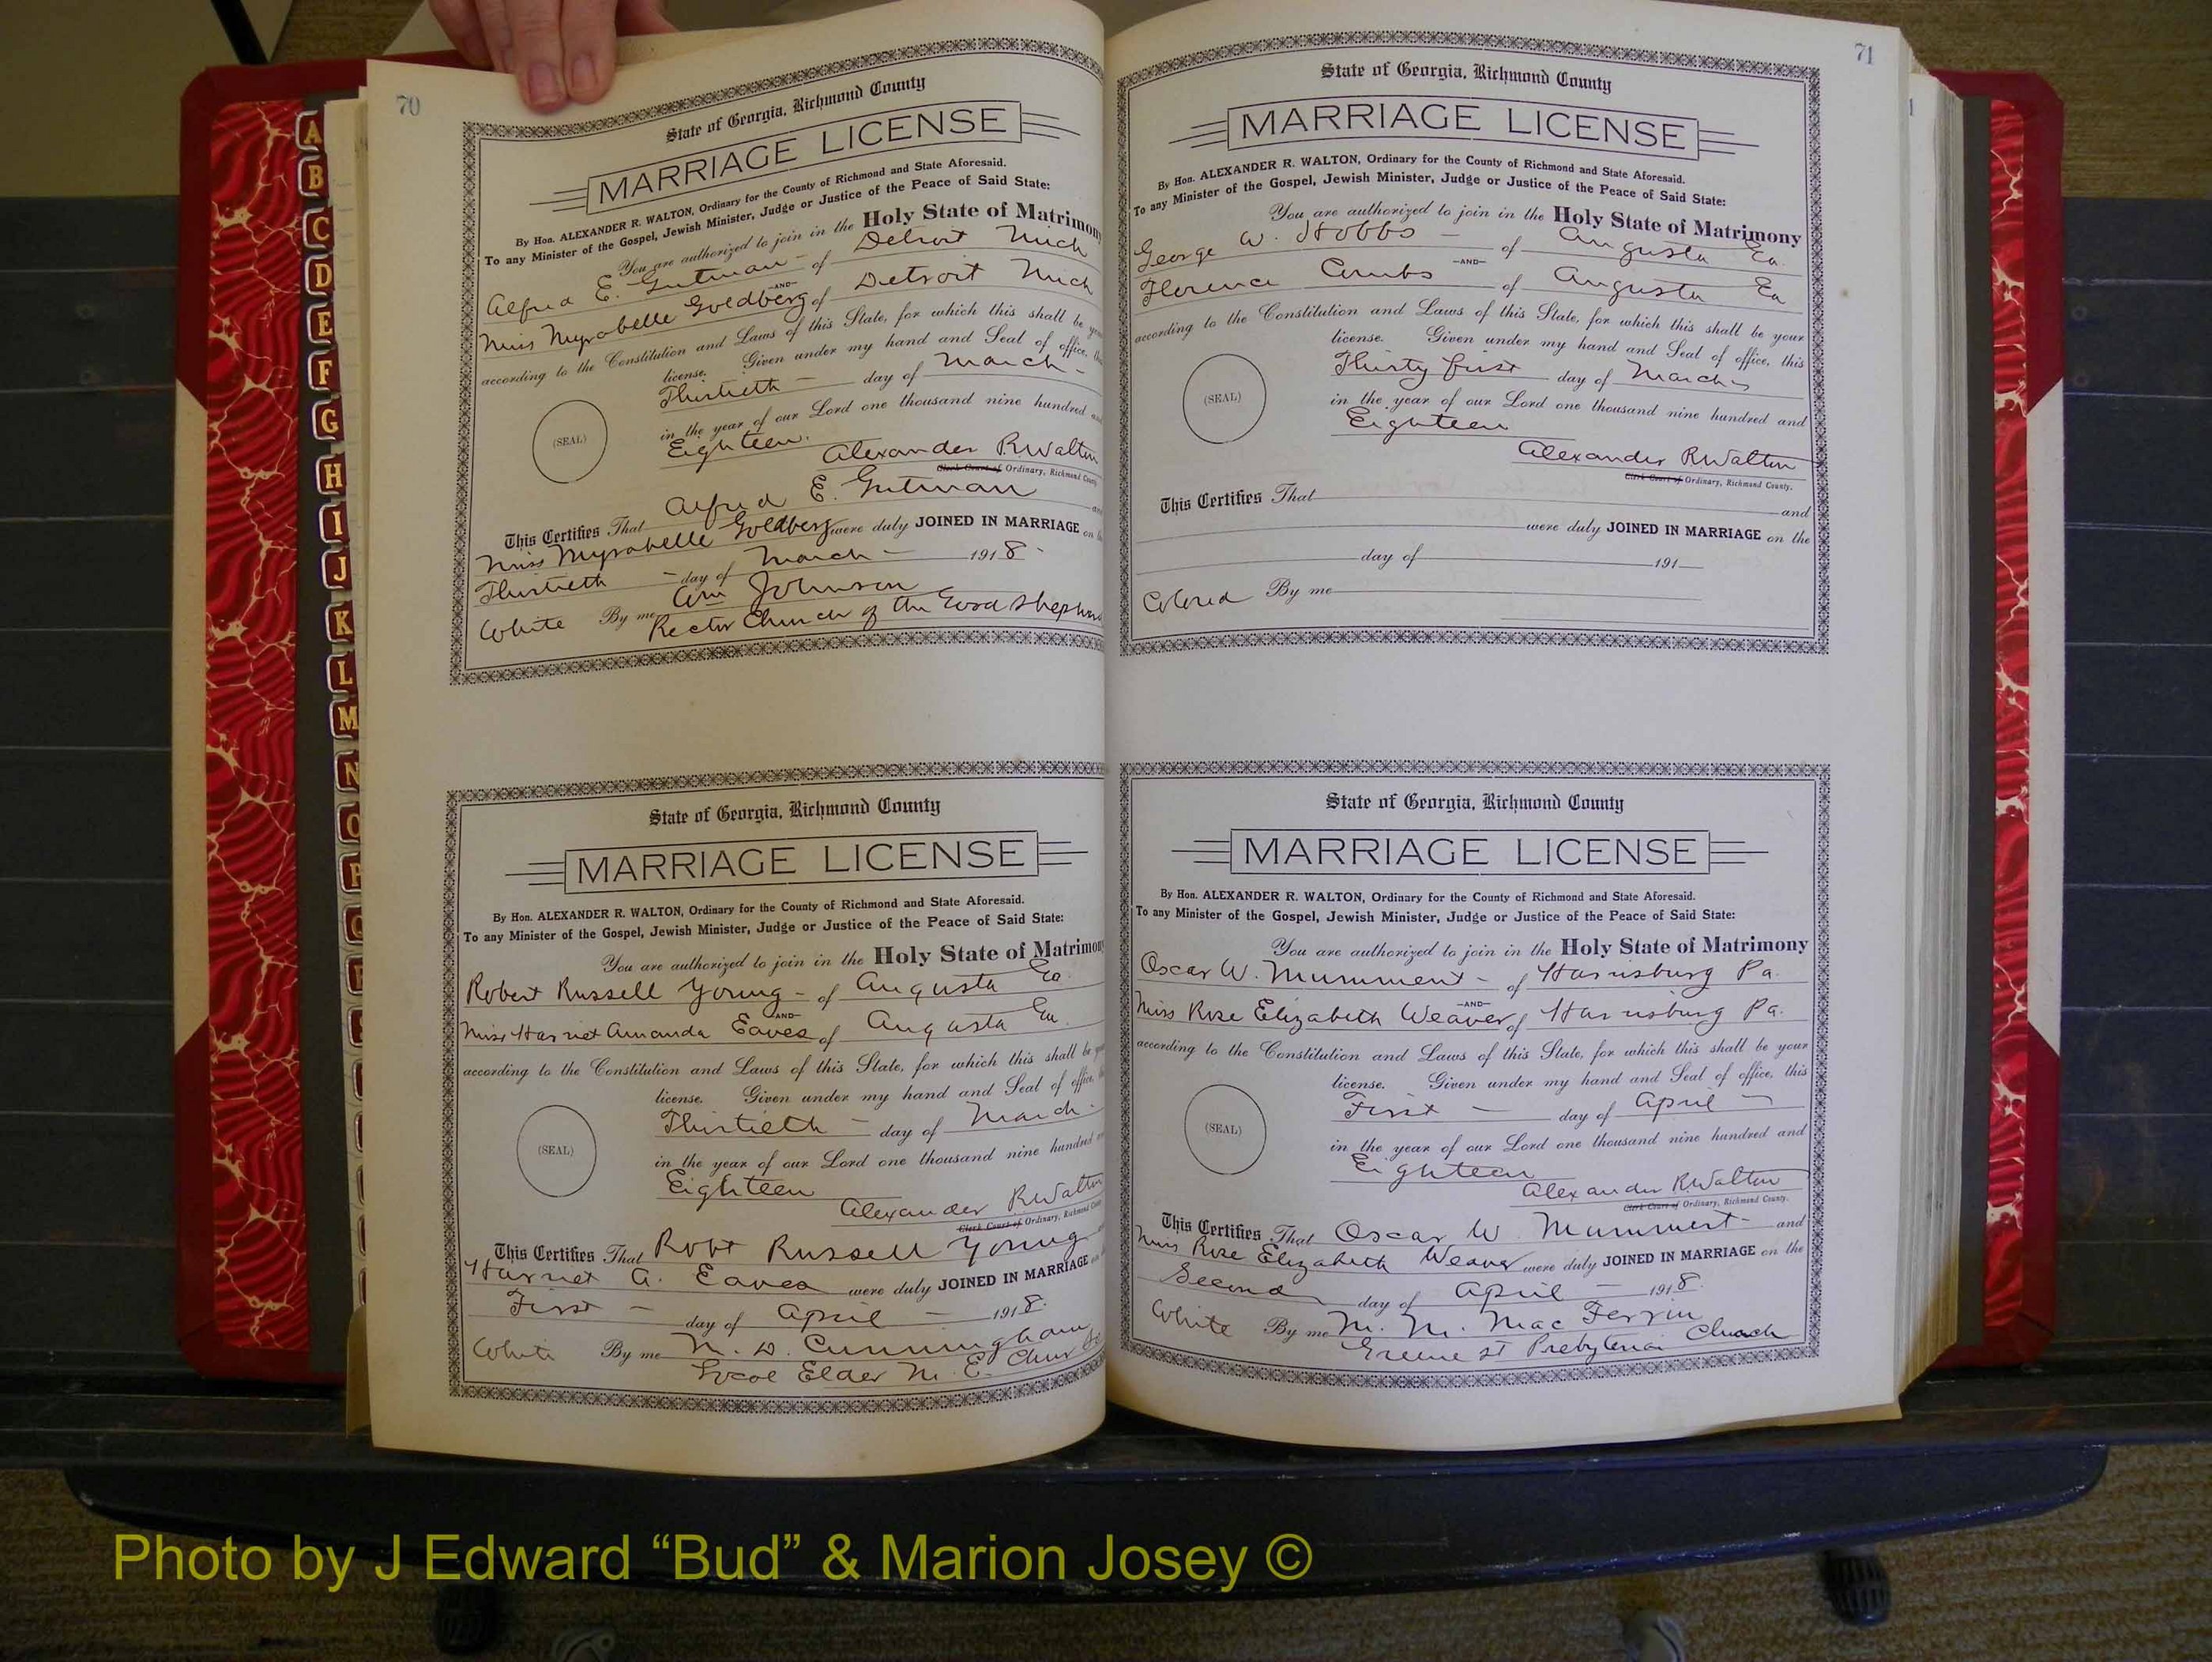 70
State of Georgia, Richmond County
MARRIAGE LICENSE
By Hon. ALEXANDER R. WALTON, Ordinary for the County of Richmond and State Aforesaid.
To any Minister of the Gospel, Jewish Minister, Judge or Justice of the Peace of Said State:
You are authorized to join in the Holy State of Matrimony
Alfred E. Gutman - of Detroit Mich
-AND-
Miss Myrabelle Goldberg of Detroit Mich
according to the Constitution and Laws of this State, for which this shall be
license. Given under my hand and Seal of office,
Thirtieth - day of March -
(SEAL)
in the year of our Lord one thousand nine hundred
Eighteen.
Alexander R Walton
Clerk Court of Ordinary, Richmond County
This Certifies That Alfred E. Gutman
Miss Myrabelle Goldberg were duly JOINED IN MARRIAGE on
Thirtieth - day of March - 1918 -
White By me Wm Johnson
Rector Church of the Good Shepherd
State of Georgia, Richmond County
MARRIAGE LICENSE
By Hon. ALEXANDER R. WALTON, Ordinary for the County of Richmond and State Aforesaid.
To any Minister of the Gospel, Jewish Minister, Judge or Justice of the Peace of Said State:
You are authorized to join in the Holy State of Matrimony
Robert Russell Young - of Augusta Ga.
AND-
Miss Harriet Amanda Eaves of Augusta Ga.
according to the Constitution and Laws of this State, for which this shall be
license. Given under my hand and Seal of office,
Thirtieth - day of March -
(SEAL)
in the year of our Lord one thousand nine hundred
Eighteen
Alexander R Walton
Clerk Court of Ordinary, Richmond
This Certifies That Robt Russell Young
Harriet A. Eaves were duly JOINED IN MARRIAGE
First - day of April - 1918.
White By me N. D. Cunningham
Local Elder M. E. Church
71
State of Georgia, Richmond County
MARRIAGE LICENSE
By Hon. ALEXANDER R. WALTON, Ordinary for the County of Richmond and State Aforesaid.
To any Minister of the Gospel, Jewish Minister, Judge or Justice of the Peace of Said State:
You are authorized to join in the Holy State of Matrimony
George W. Hobbs - of Augusta Ga.
-AND-
Florence Combs of Augusta Ga
according to the Constitution and Laws of this State, for which this shall be your
license. Given under my hand and Seal of office, this
Thirty first day of March
(SEAL)
in the year of our Lord one thousand nine hundred and
Eighteen
Alexander R Walton
Clerk Court of Ordinary, Richmond County.
This Certifies That
and
were duly JOINED IN MARRIAGE on the
day of 191
Colored By me
State of Georgia, Richmond County
MARRIAGE LICENSE
By Hon. ALEXANDER R. WALTON, Ordinary for the County of Richmond and State Aforesaid.
To any Minister of the Gospel, Jewish Minister, Judge or Justice of the Peace of Said State:
You are authorized to join in the Holy State of Matrimony
Oscar W. Mummert - of Harrisburg Pa.
-AND-
Miss Rose Elizabeth Weaver of Harrisburg Pa.
according to the Constitution and Laws of this State, for which this shall be your
license. Given under my hand and Seal of office, this
First - day of April -
(SEAL)
in the year of our Lord one thousand nine hundred and
Eighteen
Alexander R. Walton
Clerk Court of Ordinary, Richmond County.
This Certifies That Oscar W. Mummert - and
Miss Rose Elizabeth Weaver were duly JOINED IN MARRIAGE on the
Second day of April - 1918.
White By me M. M. MacFerrin
Greene St Presbyterian Church
A
B
C
D
E
F
G
H
I
J
K
L
M
N
O
P
Q
R
Photo by J Edward “Bud” & Marion Josey ©